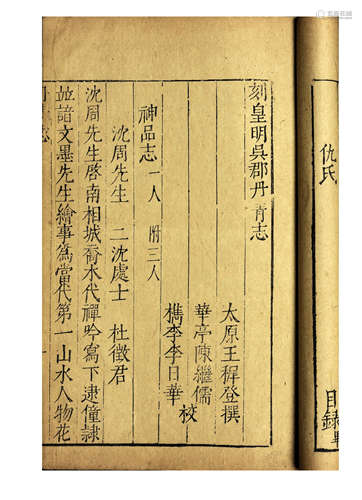 刻皇明吳郡丹青志
太原王穉登撰
華亭陳繼儒
檇李李日華
校
神品志 一人 附三人
沈周先生 二沈處士 杜徵君
沈周先生啓南相城喬木代禪吟寫下逮僮隸
並諳文墨先生繪事為當代第一山水人物花
志
一
仇氏
目錄